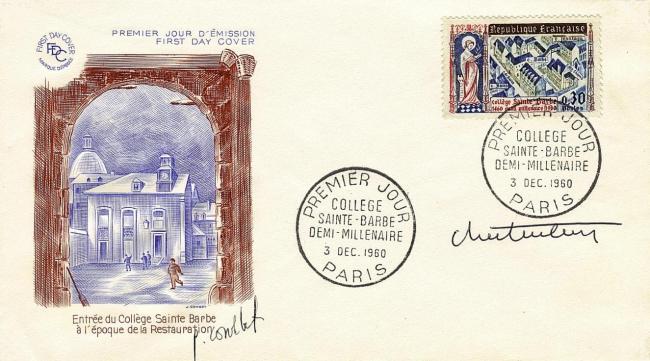 PREMIER JOUR D'ÉMISSION
FIRST DAY COVER
FIRST DAY COVER
FDC
MARQUE DÉPOSÉE
République Française
collège Sainte Barbe
0,30
Postes
PREMIER JOUR
COLLEGE
SAINTE-BARBE
DEMI-MILLENAIRE
3 DEC. 1960
PARIS
PREMIER JOUR
COLLEGE
SAINTE-BARBE
DEMI-MILLENAIRE
3 DEC. 1960
PARIS
Entrée du Collège Sainte Barbe
à l'époque de la Restauration